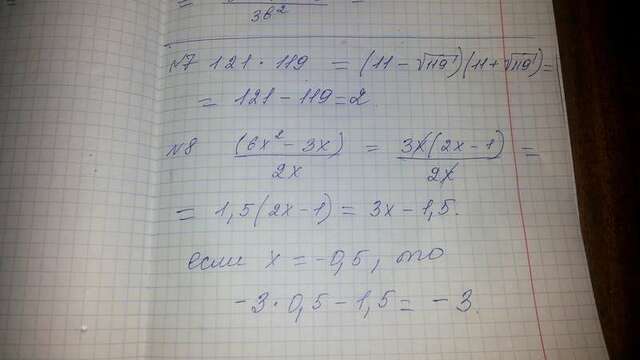 3в²
№7 121 · 119 = (11 - √119)(11 + √119) =
= 121 - 119 = 2.
№8 (6x² - 3x)/2x = 3x(2x - 1)/2x =
= 1,5(2x - 1) = 3x - 1,5.
если x = -0,5, то
-3 · 0,5 - 1,5 = -3.